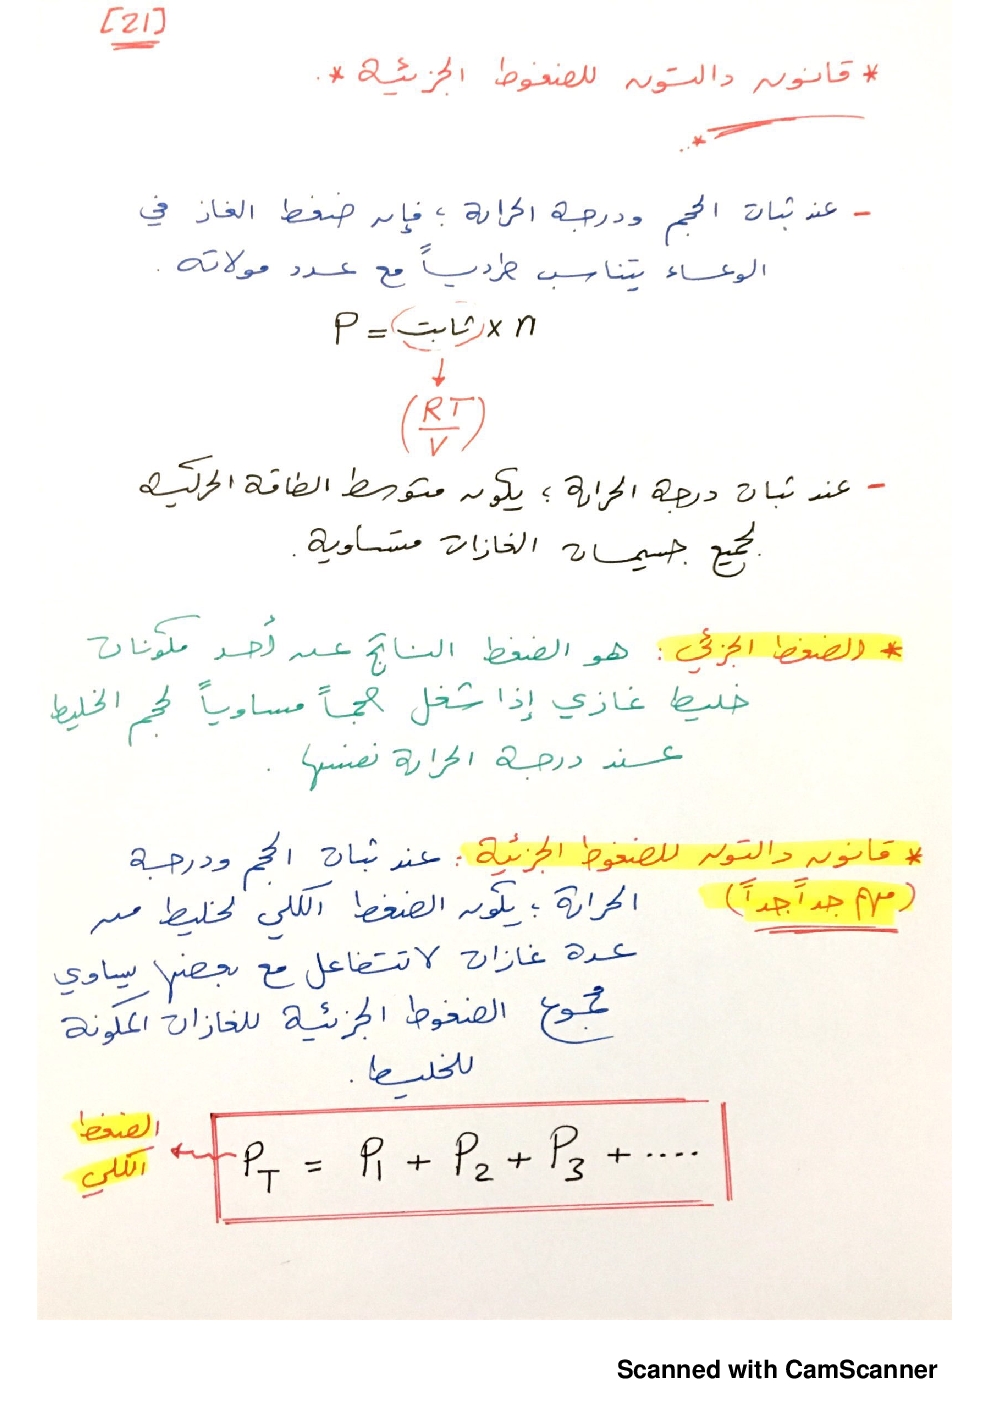 [21]
* قانون دالتون للضغوط الجزئية *
- عند ثبات الحجم ودرجة الحرارة ؛ فإن ضغط الغاز في
الوعاء يتناسب طردياً مع عدد مولاته .
P = ثابت × n
(RT/V)
- عند ثبات درجة الحرارة ؛ يكون متوسط الطاقة الحركية
لجميع جسيمات الغازات متساوية .
* الضغط الجزئي : هو الضغط الناتج عن أحد مكونات
خليط غازي إذا شغل حجماً مساوياً لحجم الخليط
عند درجة الحرارة نفسها .
* قانون دالتون للضغوط الجزئية : عند ثبات الحجم ودرجة
(مهم جداً جداً) الحرارة ؛ يكون الضغط الكلي لخليط من
عدة غازات لا تتفاعل مع بعضها يساوي
مجموع الضغوط الجزئية للغازات المكونة
للخليط .
P_T = P_1 + P_2 + P_3 + ....
الضغط
الكلي
Scanned with CamScanner